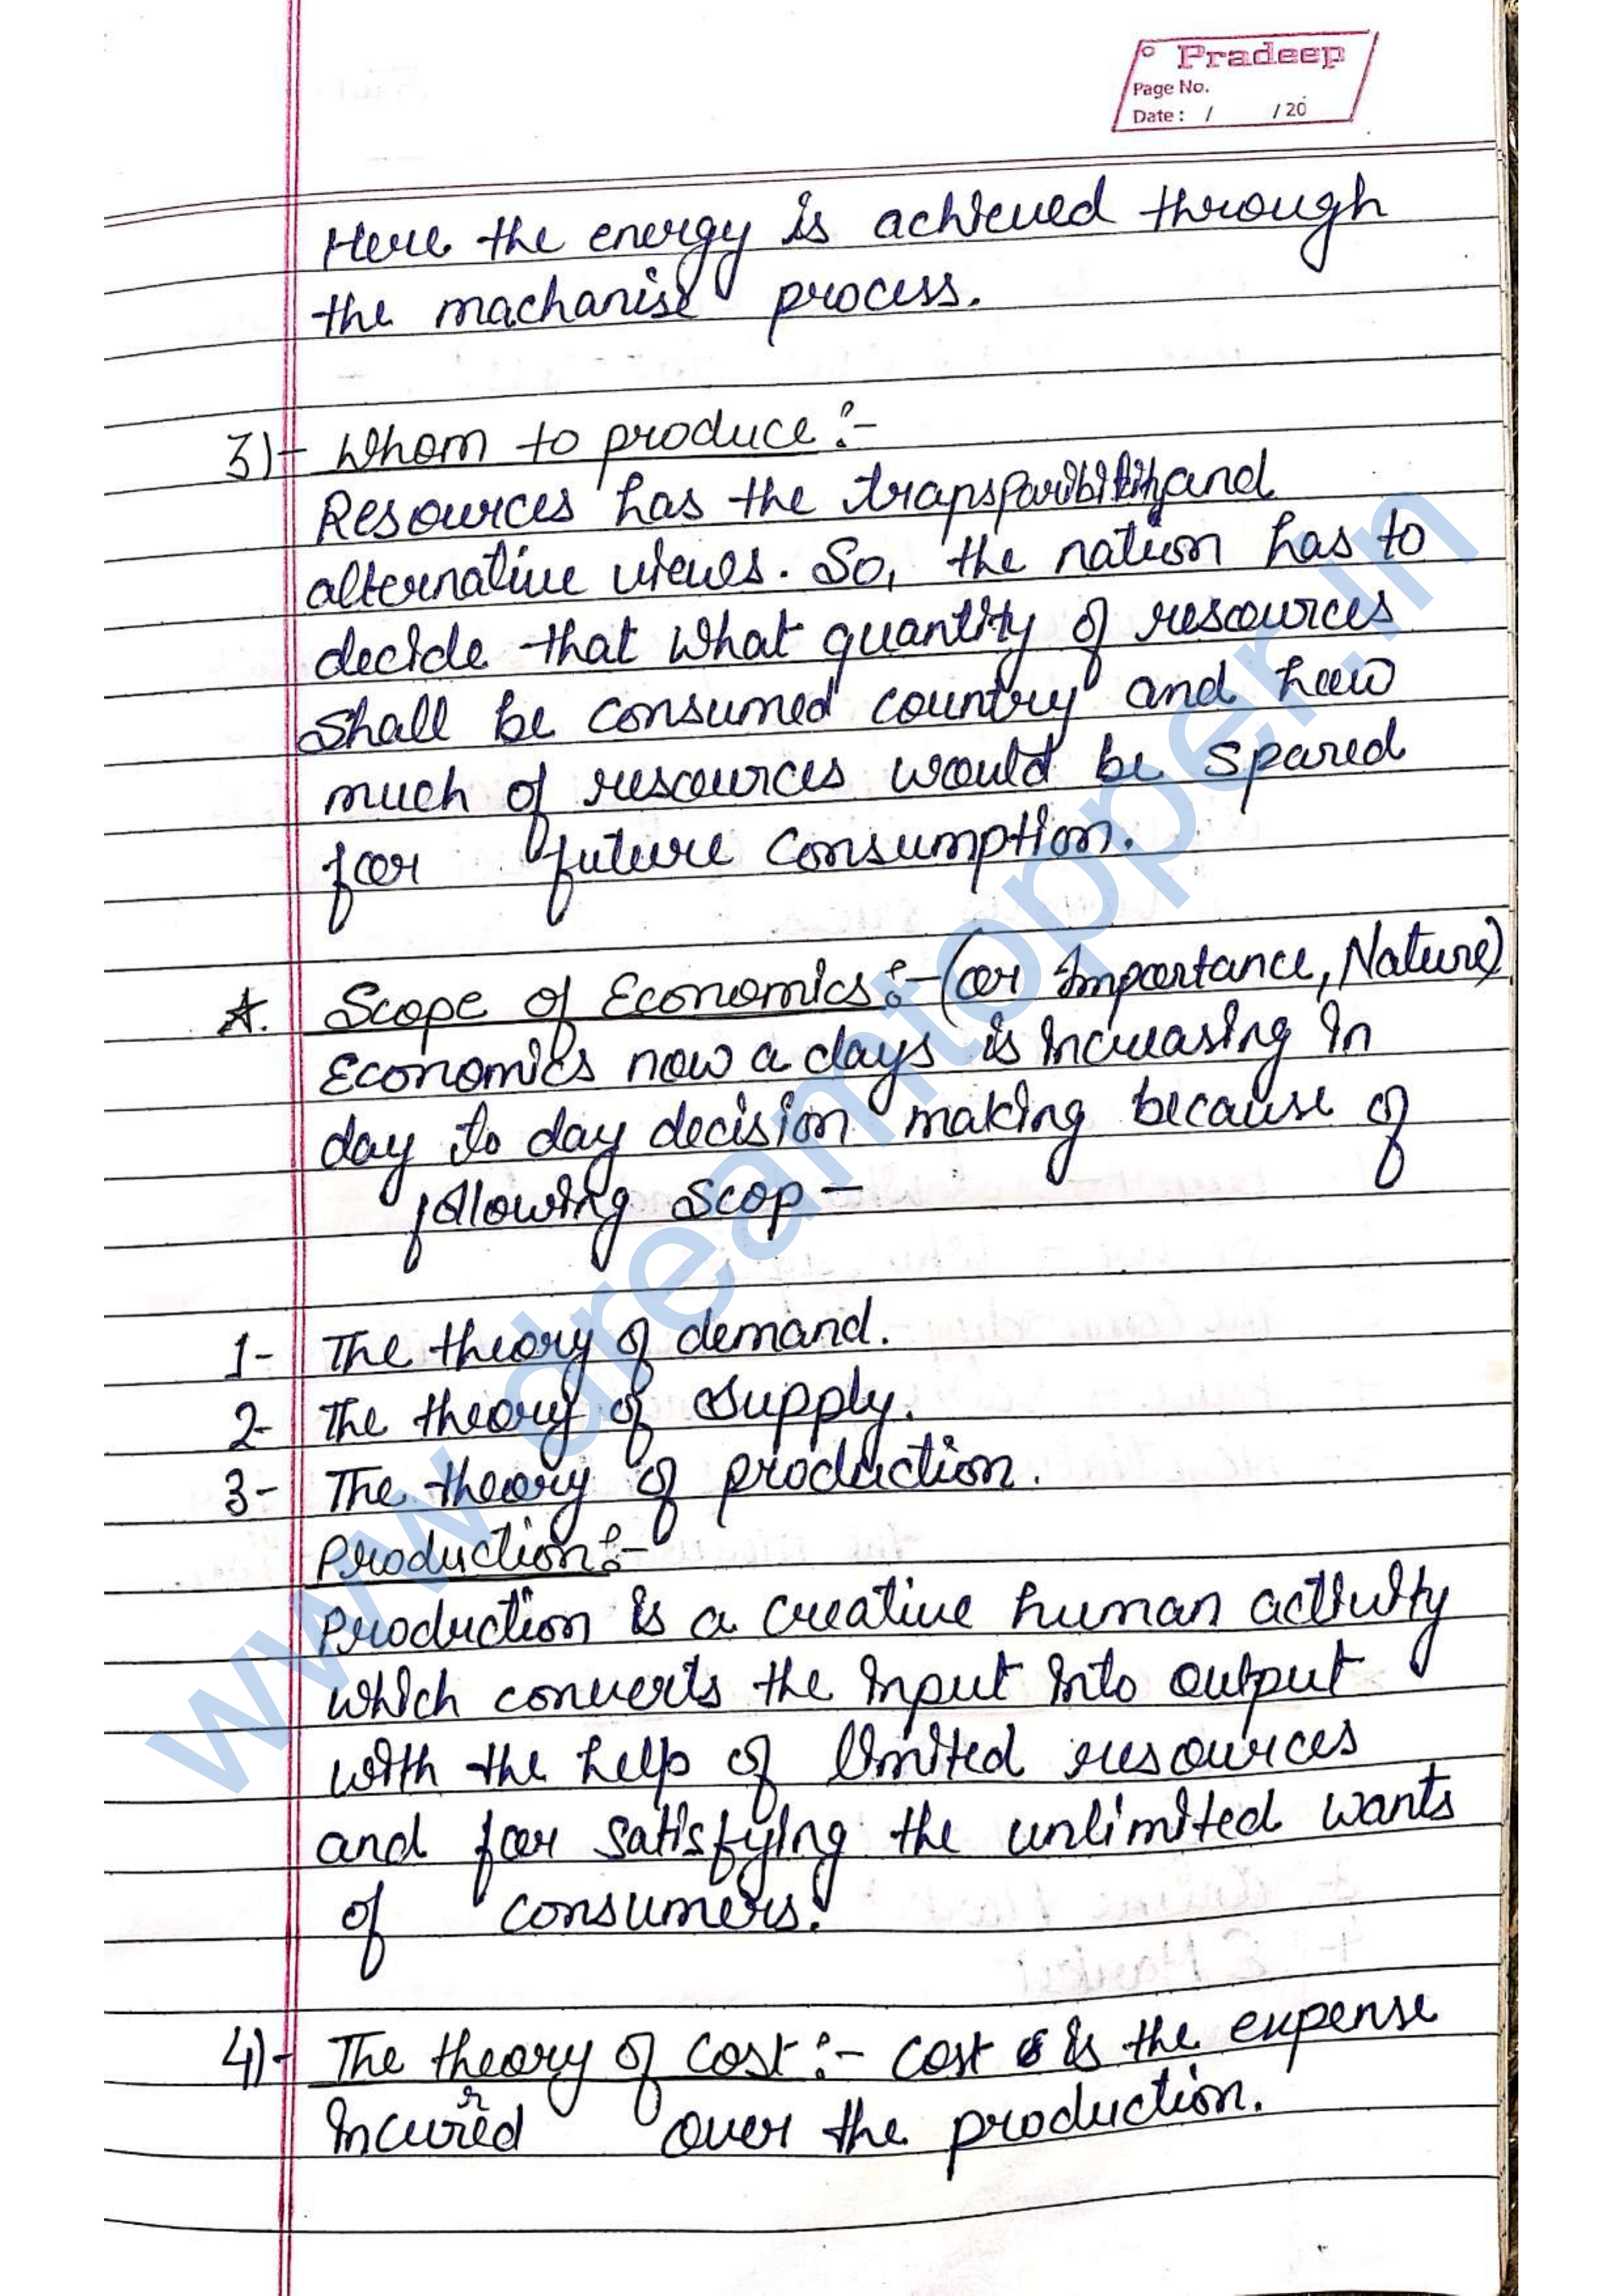 Pradeep
Page No.
Date : / / 20
Here the energy is achieved through
the machanise process.
3)- Whom to produce :-
Resources has the and
alternative views. So, the nation has to
decide that what quantity of resources
shall be consumed country and how
much of resources would be spared
for future consumption.
*. Scope of Economics :- (or Importance, Nature)
Economics now a days is increasing in
day to day decision making because of
following scop -
1- The theory of demand.
2- The theory of supply.
3- The theory of production.
Production :-
Production is a creative human activity
which converts the input into output
with the help of limited resources
and for satisfying the unlimited wants
of consumers.
4)- The theory of cost :- cost is the expense
incurred over the production.
www.dreamtopper.in